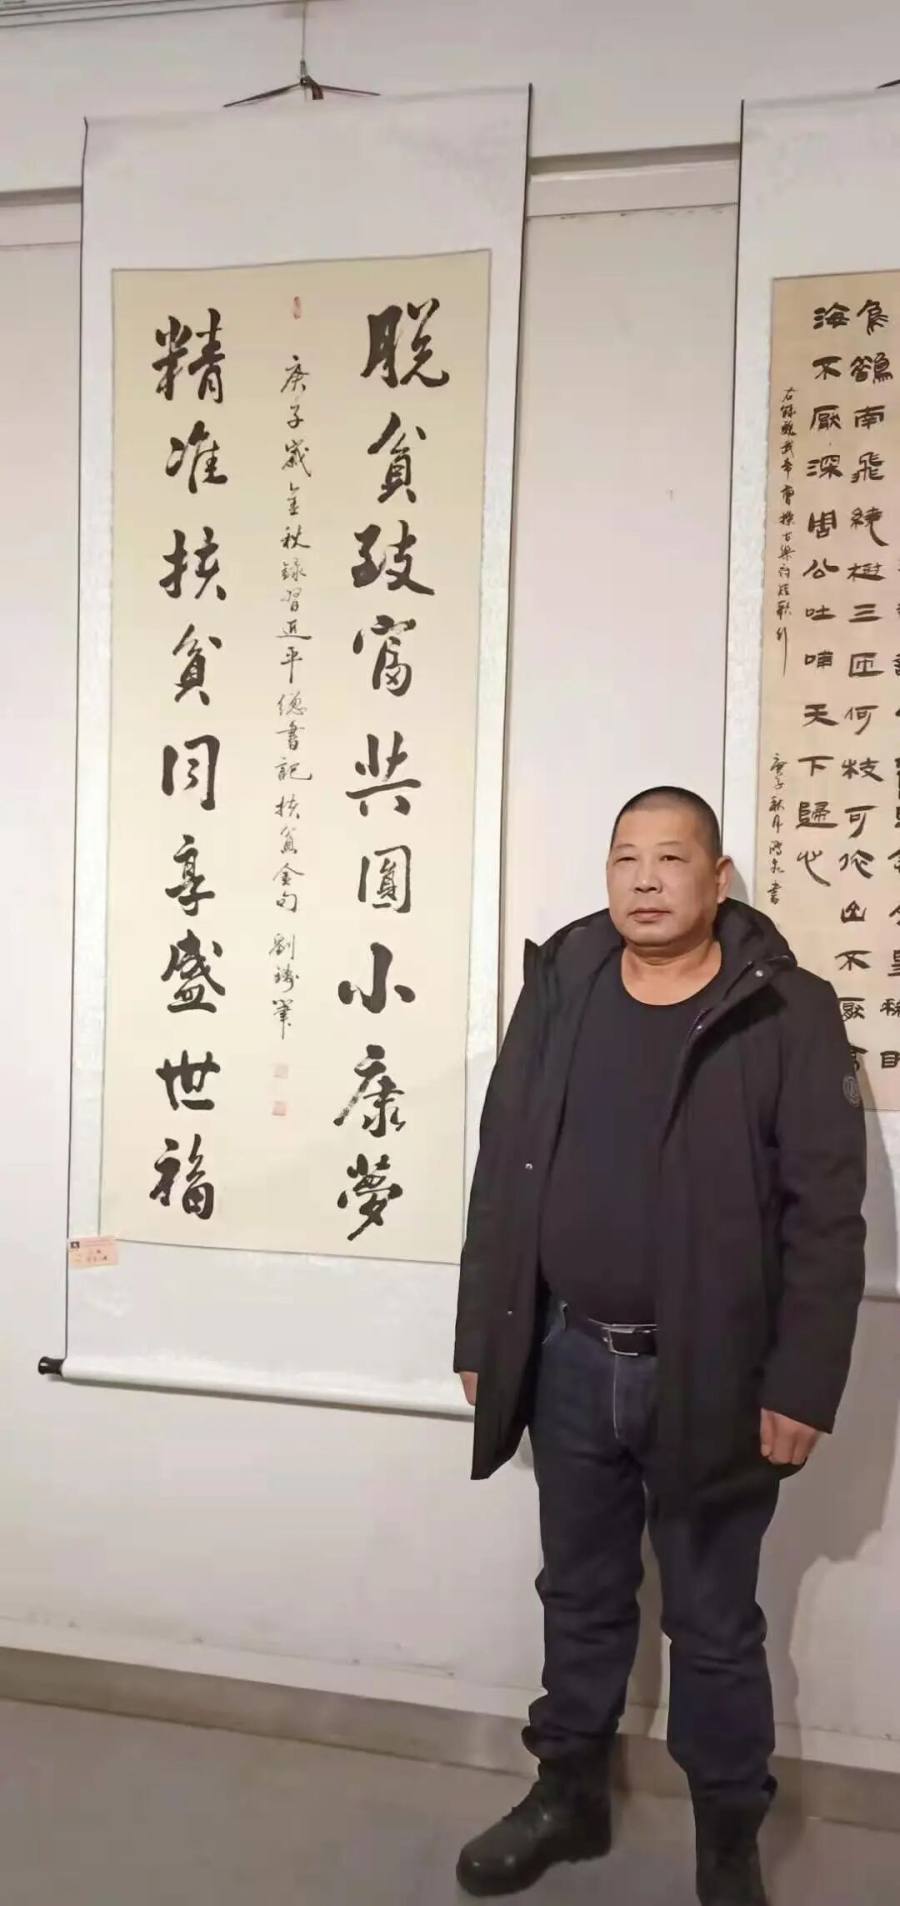 脱貧致富共圓小康夢
精准扶貧同享盛世福
庚子歲金秋録習近平總書記扶貧金句 劉筆
烏鵲南飛繞樹三匝何枝可依山不厭高
海不厭深周公吐哺天下歸心
右録魏武帝曹操古樂府短歌行
庚子秋月書